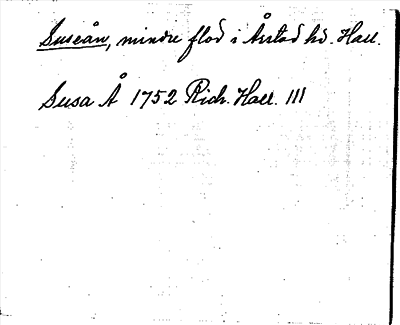 Suseån, mindre flod i Årstad hd. Hall.
Susa Å 1752 Rich. Hall. 111